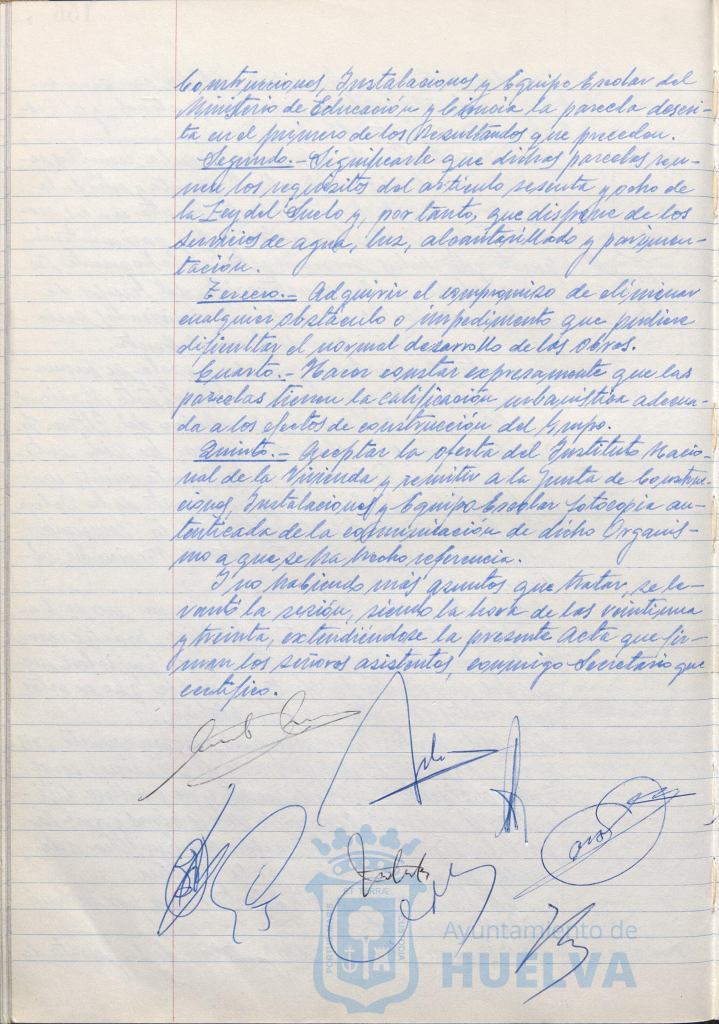 Construcciones, Instalaciones y Equipo Escolar del
Ministerio de Educación y Ciencia la parcela descri-
ta en el primero de los Resultandos que preceden.
Segundo.- Significarle que dichas parcelas reu-
nen los requisitos del artículo sesenta y ocho de
la Ley del Suelo y, por tanto, que dispone de los
servicios de agua, luz, alcantarillado y pavimen-
tación.
Tercero.- Adquirir el compromiso de eliminar
cualquier obstáculo o impedimento que pudiera
dificultar el normal desarrollo de las obras.
Cuarto.- Hacer constar expresamente que las
parcelas tienen la calificación urbanística adecua-
da a los efectos de construcción del Grupo.
Quinto.- Aceptar la oferta del Instituto Nacio-
nal de la Vivienda y remitir a la Junta de Construc-
ciones, Instalaciones y Equipo Escolar fotocopia au-
tenticada de la comunicación de dicho Organis-
mo a que se ha hecho referencia.
Y no habiendo más asuntos que tratar, se le-
vantó la sesión, siendo la hora de las veintiuna
y treinta, extendiéndose la presente Acta que fir-
man los señores asistentes, conmigo Secretario que
certifico.
Ayuntamiento de
HUELVA